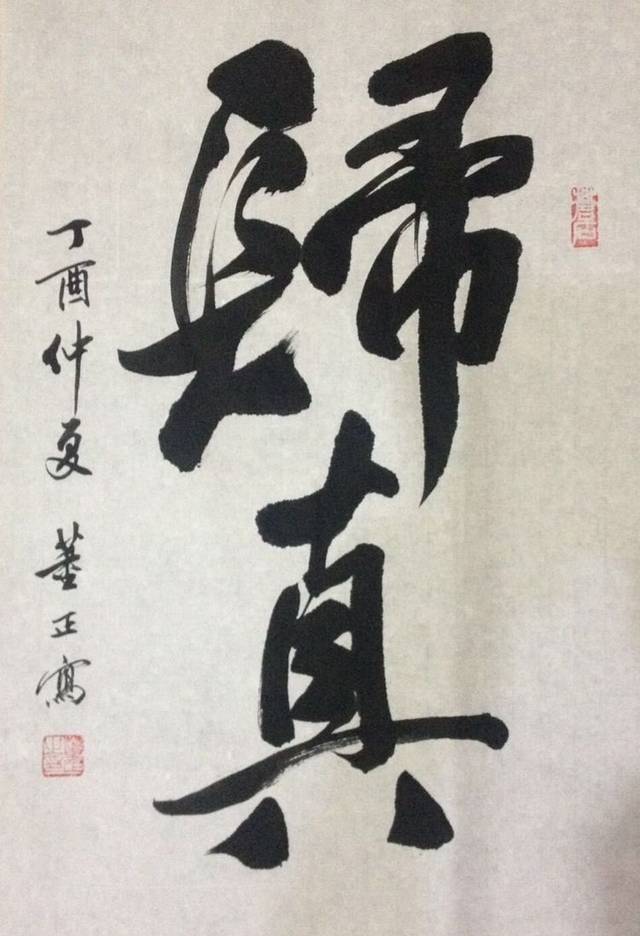 歸真
丁酉仲夏 董正寫